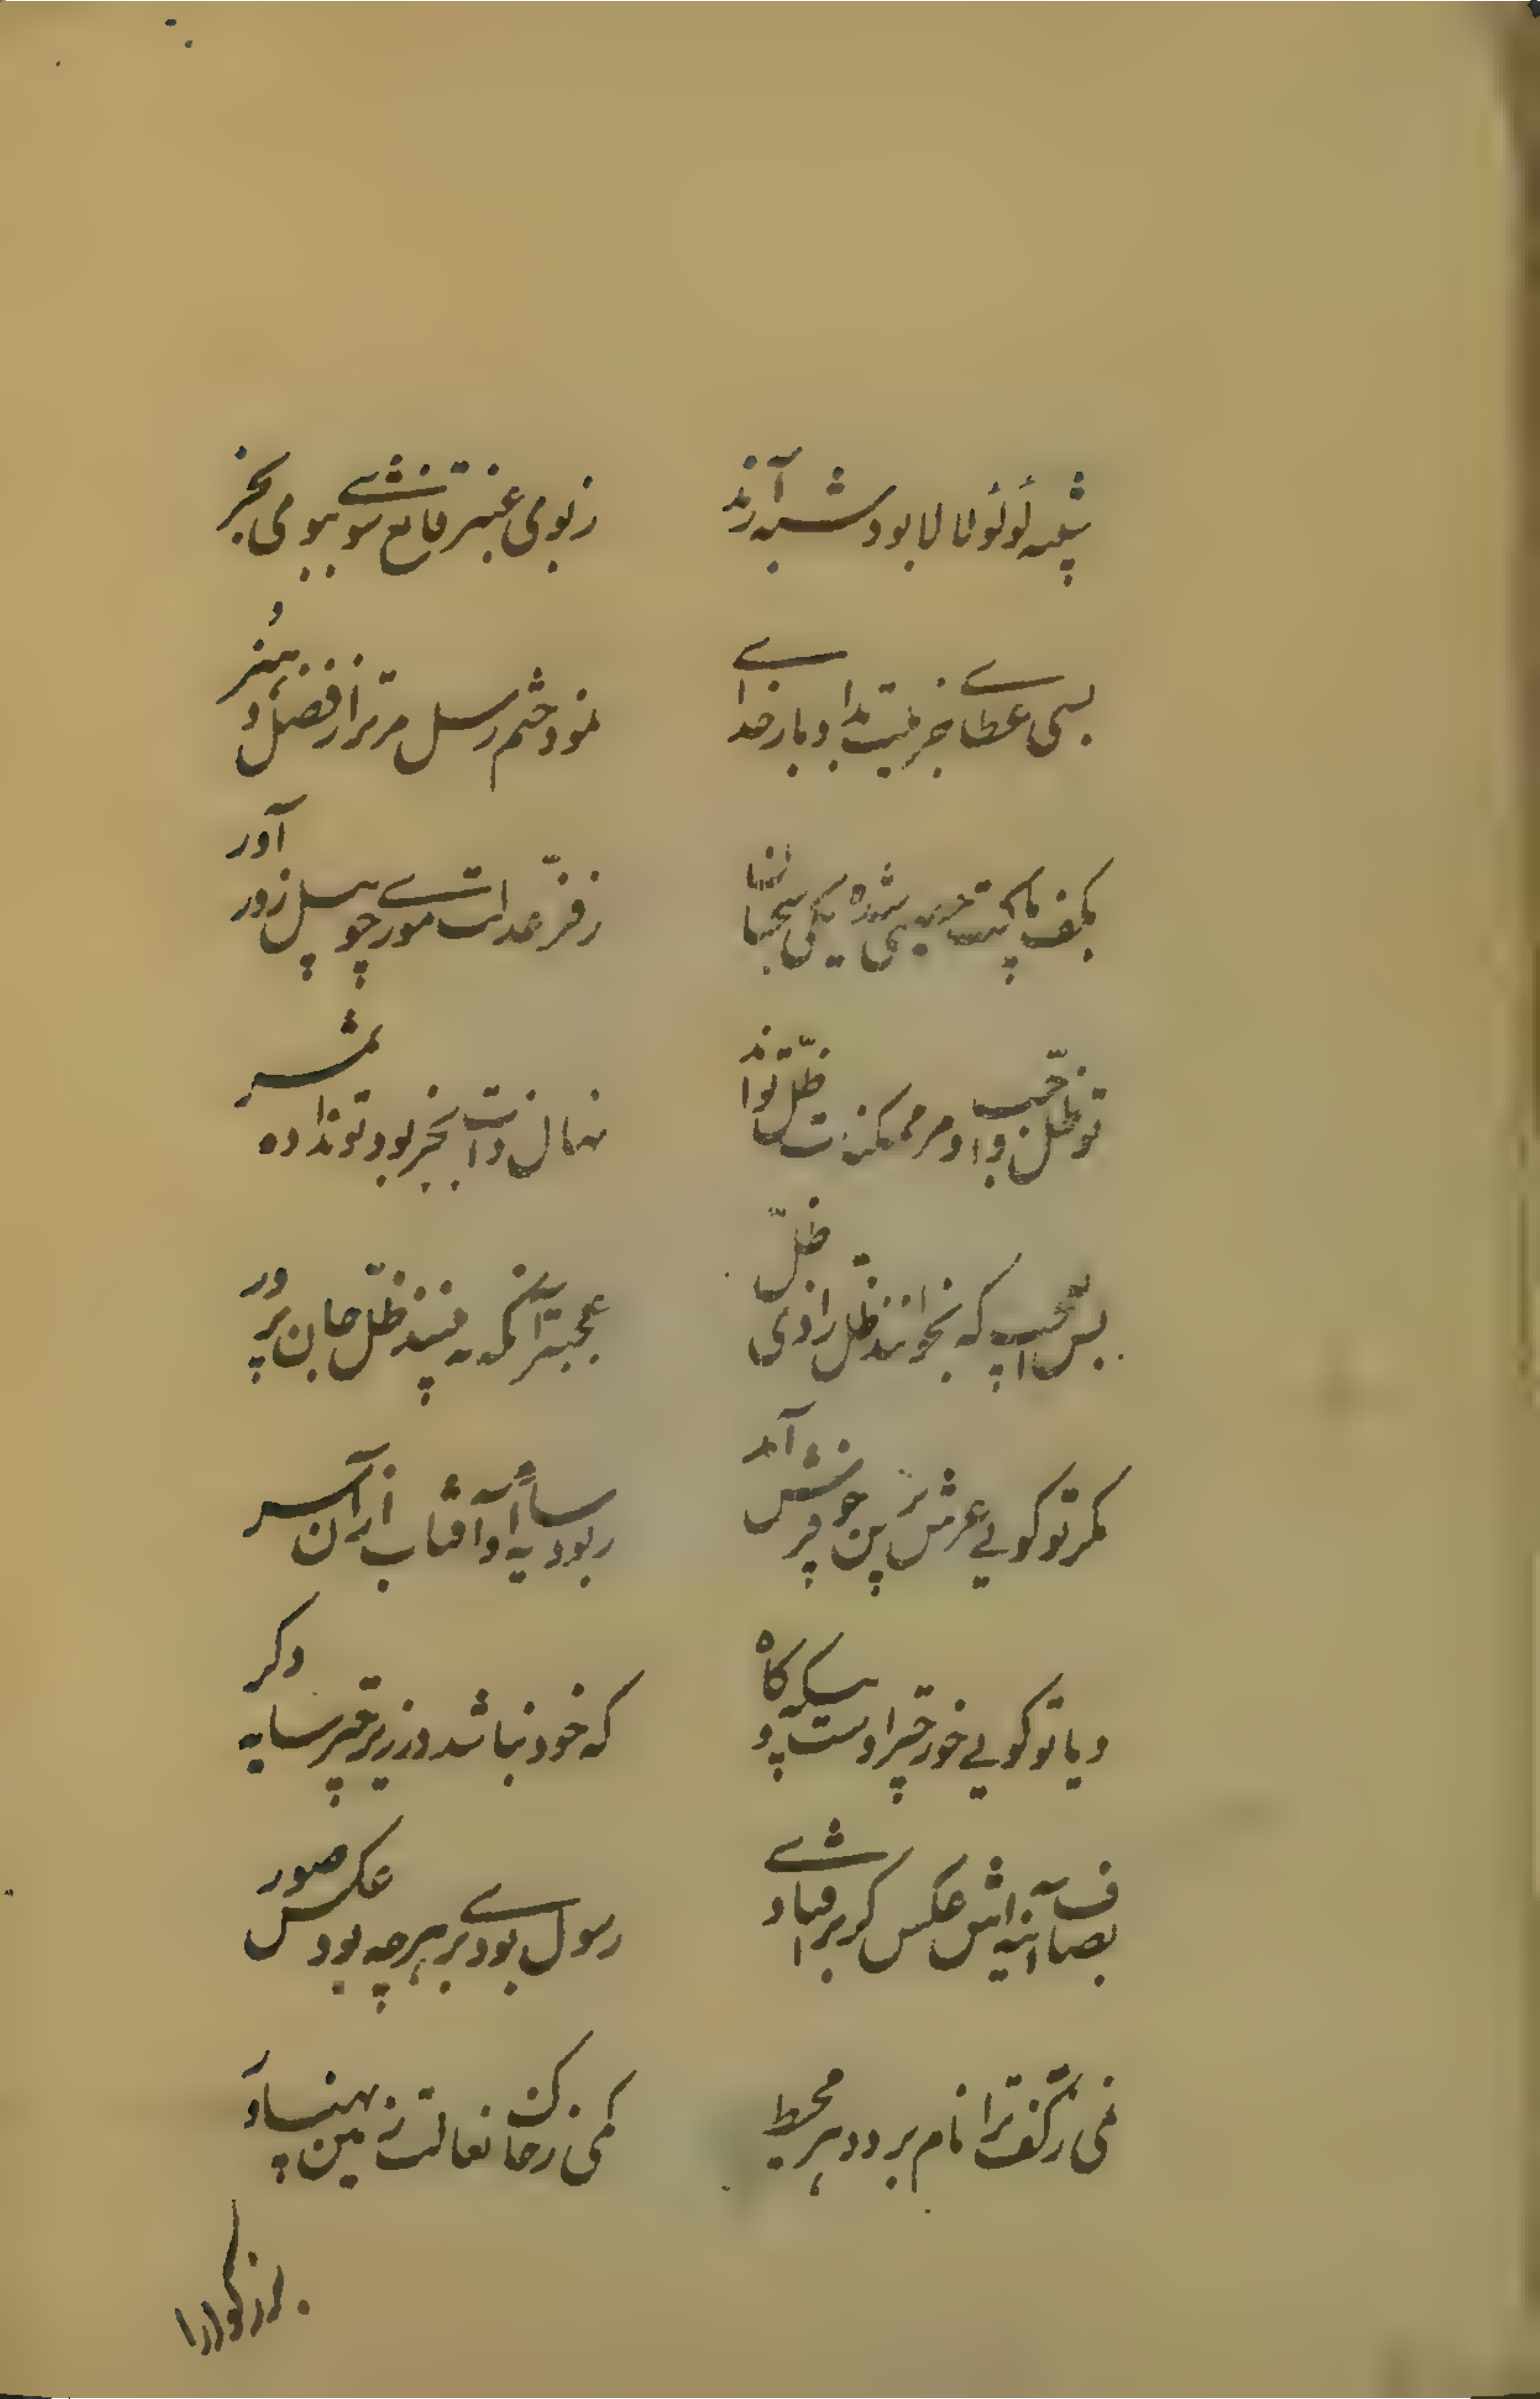 شبه لؤلؤ لالا بود شبه آرند
ز بوی عنبر قانع شوی ببوی بخر
بسی عطای خرینت بداد بار خدای
نمود ختم رسل مر ترا ز فضل و هنر
بکف پاکت حصی شده یکی سبحان
ز فرّ عدات موری چو پیل زور آور
تو ظلّ واجب و مر ممکنات ظلّ تواند
نهال ذات بجز بود تو نداده ثمر
بس عجب که نخوانند ظلّ را ذی ظلّ
عجبتر آنکه نه بینند ظلّ جان پرور
مگر تو گویی عرش برین چو فرش آمد
ربود سایهٔ او آفتاب را از آن سر
و یا تو گویی خور چتر اوست سایه گاه و
که خود نباشد در زیر چتر سایه دگر
بصاف آینه اش عکس گر بر فتادی
رسول بودی بر هر چه بود عکس صور
نمی ز رشگفت را نام برد دهر محیط
کمی ز خاک نعالت زمین پهناور
بزرگوارا